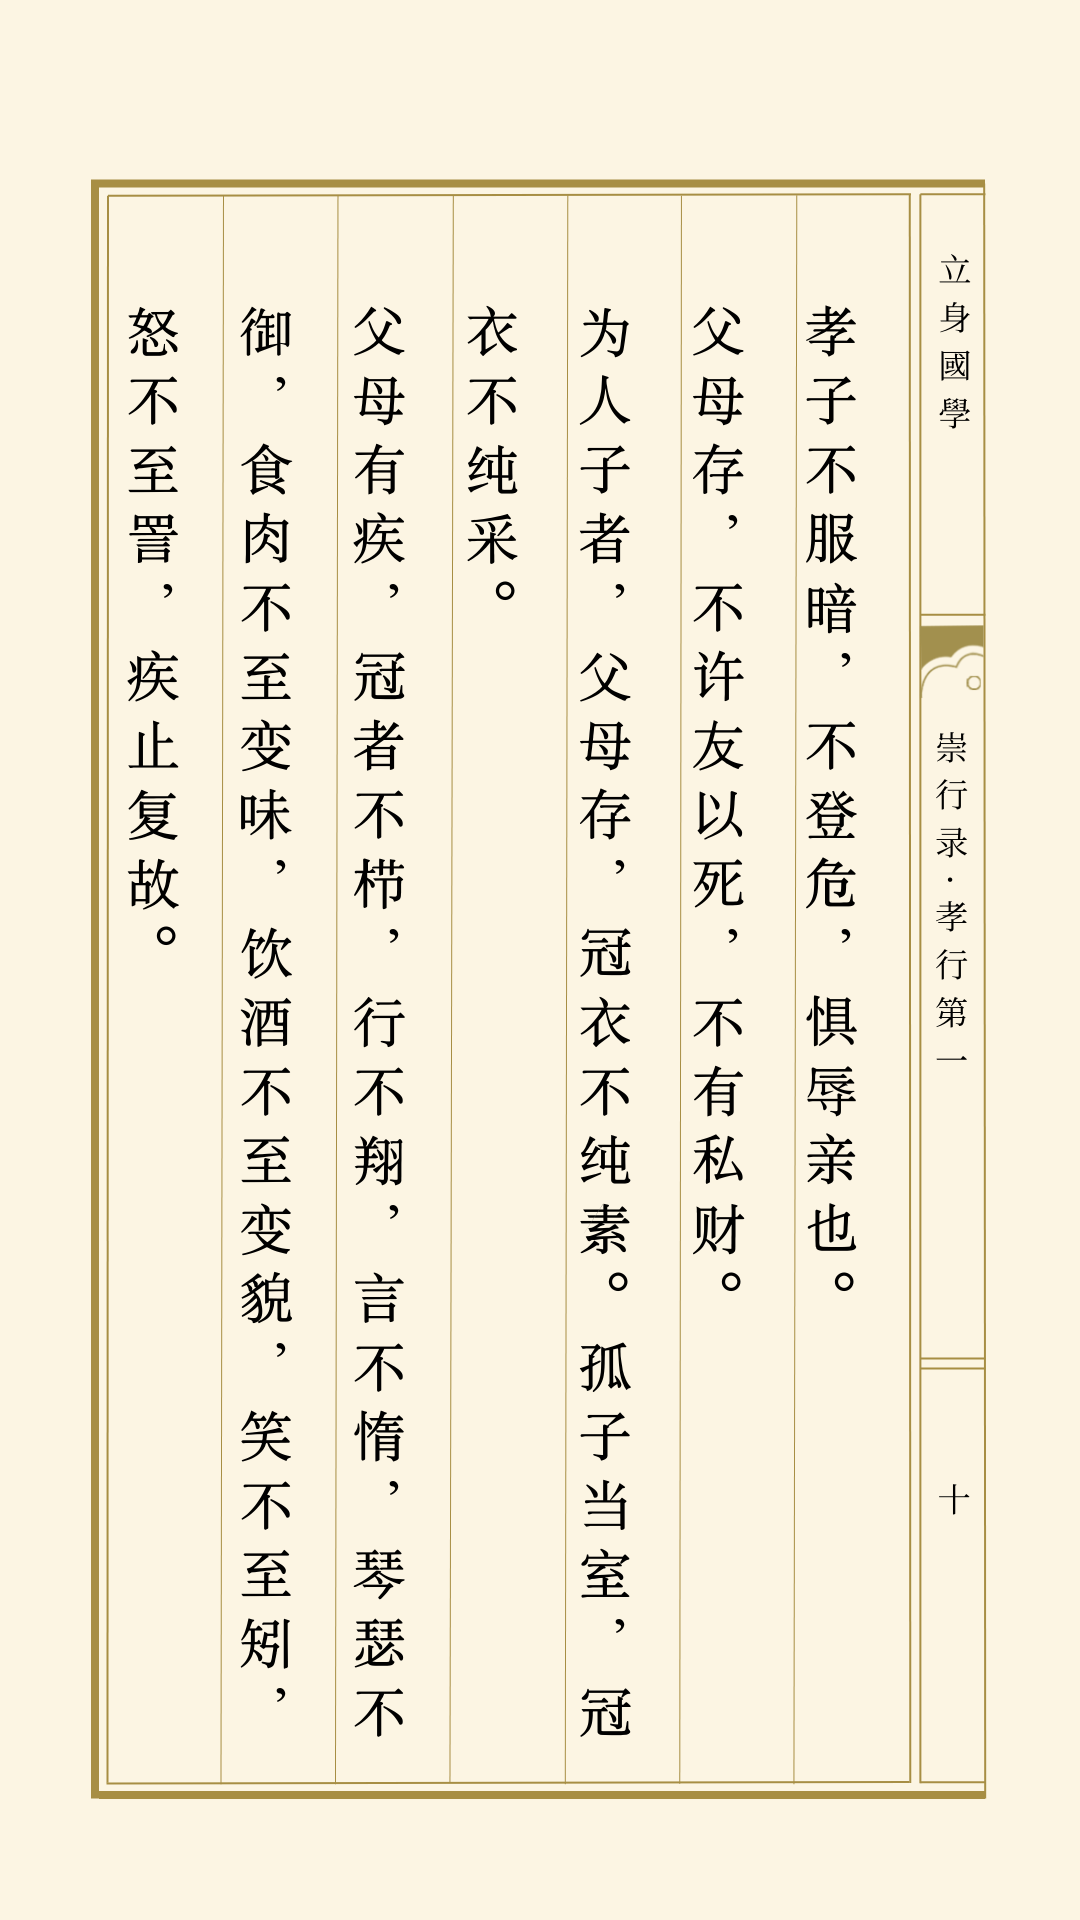 立身國學
崇行录·孝行第一
十
孝子不服暗，不登危，惧辱亲也。
父母存，不许友以死，不有私财。
为人子者，父母存，冠衣不纯素。孤子当室，冠
衣不纯采。
父母有疾，冠者不栉，行不翔，言不惰，琴瑟不
御，食肉不至变味，饮酒不至变貌，笑不至矧，
怒不至詈，疾止复故。